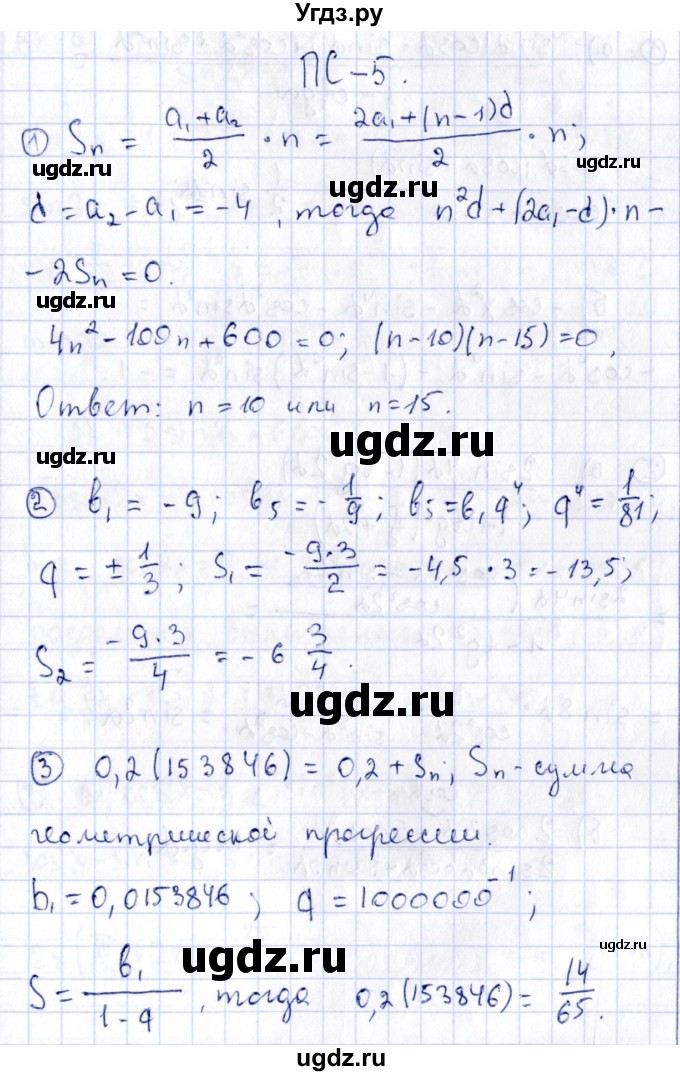 Угдз.ру
ПС-5.
① Sₙ = (a₁+a₂)/2 · n = (2a₁+(n-1)d)/2 · n;
ugdz.ru ugdz.ru
d = a₂ - a₁ = -4, тогда n²d + (2a₁-d)·n -
- 2Sₙ = 0.
ugdz.ru
4n² - 100n + 600 = 0; (n-10)(n-15) = 0,
Ответ: n = 10 или n = 15.
ugdz.ru
ugdz.ru
② b₁ = -9; b₅ = -1/9; b₅ = b₁q⁴; q⁴ = 1/81;
q = ± 1/3; S₁ = (-9·3)/2 = -4,5 · 3 = -13,5;
ugdz.ru
S₂ = (-9·3)/4 = -6 3/4.
ugdz.ru
③ 0,2(153846) = 0,2 + Sₙ; Sₙ - сумма
ugdz.ru
геометрической прогрессии.
b₁ = 0,0153846; q = 1000000⁻¹;
ugdz.ru ugdz.ru
S = b₁/(1-q), тогда 0,2(153846) = 14/65.
ugdz.ru